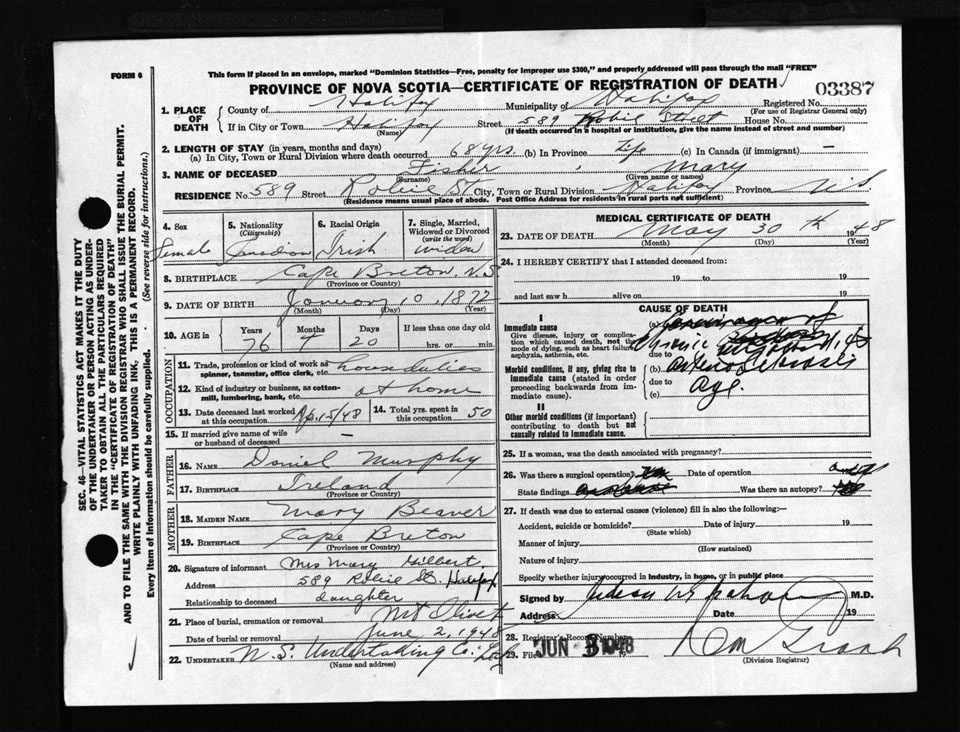 FORM 6
This form if placed in an envelope, marked "Dominion Statistics—Free, penalty for improper use $300," and properly addressed will pass through the mail "FREE"
PROVINCE OF NOVA SCOTIA—CERTIFICATE OF REGISTRATION OF DEATH
03387
1. PLACE OF DEATH
County of Halifax Municipality of Halifax Registered No.
(For use of Registrar General only)
If in City or Town Halifax Street 589 Robie Street House No.
(Name) (If death occurred in a hospital or institution, give the name instead of street and number)
2. LENGTH OF STAY (in years, months and days)
(a) In City, Town or Rural Division where death occurred 68 yrs. (b) In Province Life (c) In Canada (if immigrant) —
3. NAME OF DECEASED Fisher, Mary
(Surname) (Given name or names)
RESIDENCE No. 589 Street Robie St City, Town or Rural Division Halifax Province N.S
(Residence means usual place of abode. Post Office Address for residents in rural parts not sufficient)
4. Sex Female
5. Nationality (Citizenship) Canadian
6. Racial Origin Irish
7. Single, Married, Widowed or Divorced (write the word) Widow
8. BIRTHPLACE Cape Breton, N.S
(Province or Country)
9. DATE OF BIRTH January 10, 1872
(Month) (Day) (Year)
10. AGE in Years Months Days If less than one day
76 4 20 hrs. or min.
OCCUPATION
11. Trade, profession or kind of work as spinner, teamster, office clerk, etc. house duties
12. Kind of industry or business, as cotton-mill, lumbering, bank, etc. at home
13. Date deceased last worked at this occupation Ap. 15/48
14. Total yrs. spent in this occupation 50
15. If married give name of wife or husband of deceased —
FATHER
16. NAME Daniel Murphy
17. BIRTHPLACE Ireland
(Province or Country)
MOTHER
18. MAIDEN NAME Mary Beaver
19. BIRTHPLACE Cape Breton
(Province or Country)
20. Signature of informant Mrs Mary Gilbert.
Address 589 Robie St. Halifax
Relationship to deceased daughter
21. Place of burial, cremation or removal Mt Olivet
Date of burial or removal June 2, 1948
22. UNDERTAKER N.S. Undertaking Co.
(Name and address)
MEDICAL CERTIFICATE OF DEATH
23. DATE OF DEATH May 30th 1948
(Month) (Day) (Year)
24. I HEREBY CERTIFY that I attended deceased from:
19 to 19
and last saw h alive on 19
CAUSE OF DEATH
I
Immediate cause
Give disease, injury or complication which caused death, not the mode of dying, such as heart failure, asphyxia, asthenia, etc.
Morbid conditions, if any, giving rise to immediate cause (stated in order proceeding backwards from immediate cause).
II
Other morbid conditions (if important) contributing to death but not causally related to immediate cause.
(a)
Chronic
due to
(b)
due to Age.
(c)
25. If a woman, was the death associated with pregnancy?
26. Was there a surgical operation? Date of operation 19
State findings Was there an autopsy?
27. If death was due to external causes (violence) fill in also the following:—
Accident, suicide or homicide? Date of injury 19
(State which)
Manner of injury
(How sustained)
Nature of injury
Specify whether injury occurred in industry, in home, or in public place
Signed by M.D.
Address Date 19
28. Registrar's Record Number
29. Filed JUN 3 1948
(Division Registrar)
SEC. 46—VITAL STATISTICS ACT MAKES IT THE DUTY
OF THE UNDERTAKER OR PERSON ACTING AS UNDERTAKER
TO OBTAIN ALL THE PARTICULARS REQUIRED
IN THE "CERTIFICATE OF REGISTRATION OF DEATH"
AND TO FILE THE SAME WITH THE DIVISION REGISTRAR WHO SHALL ISSUE THE BURIAL PERMIT.
WRITE PLAINLY WITH UNFADING INK, THIS IS A PERMANENT RECORD.
Every item of information should be carefully supplied. (See reverse side for instructions.)